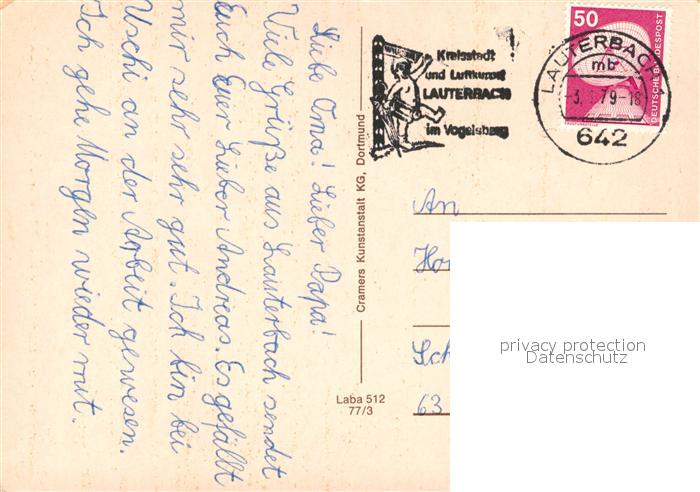 Liebe Oma! Lieber Papa!
Viele Grüße aus Lauterbach sendet
Euch Euer Lieber Andreas. Es gefällt
mir sehr sehr gut. Ich bin bei
Uschi an der Arbeit gewesen.
Ich gehe Morgen wieder mit.
Cramers Kunstanstalt KG, Dortmund
Laba 512
77/3
Kreisstadt
und Luftkurort
LAUTERBACH
im Vogelsberg
50
DEUTSCHE BUNDESPOST
LAUTERBACH 1
mb
79-18
642
An
63
privacy protection
Datenschutz